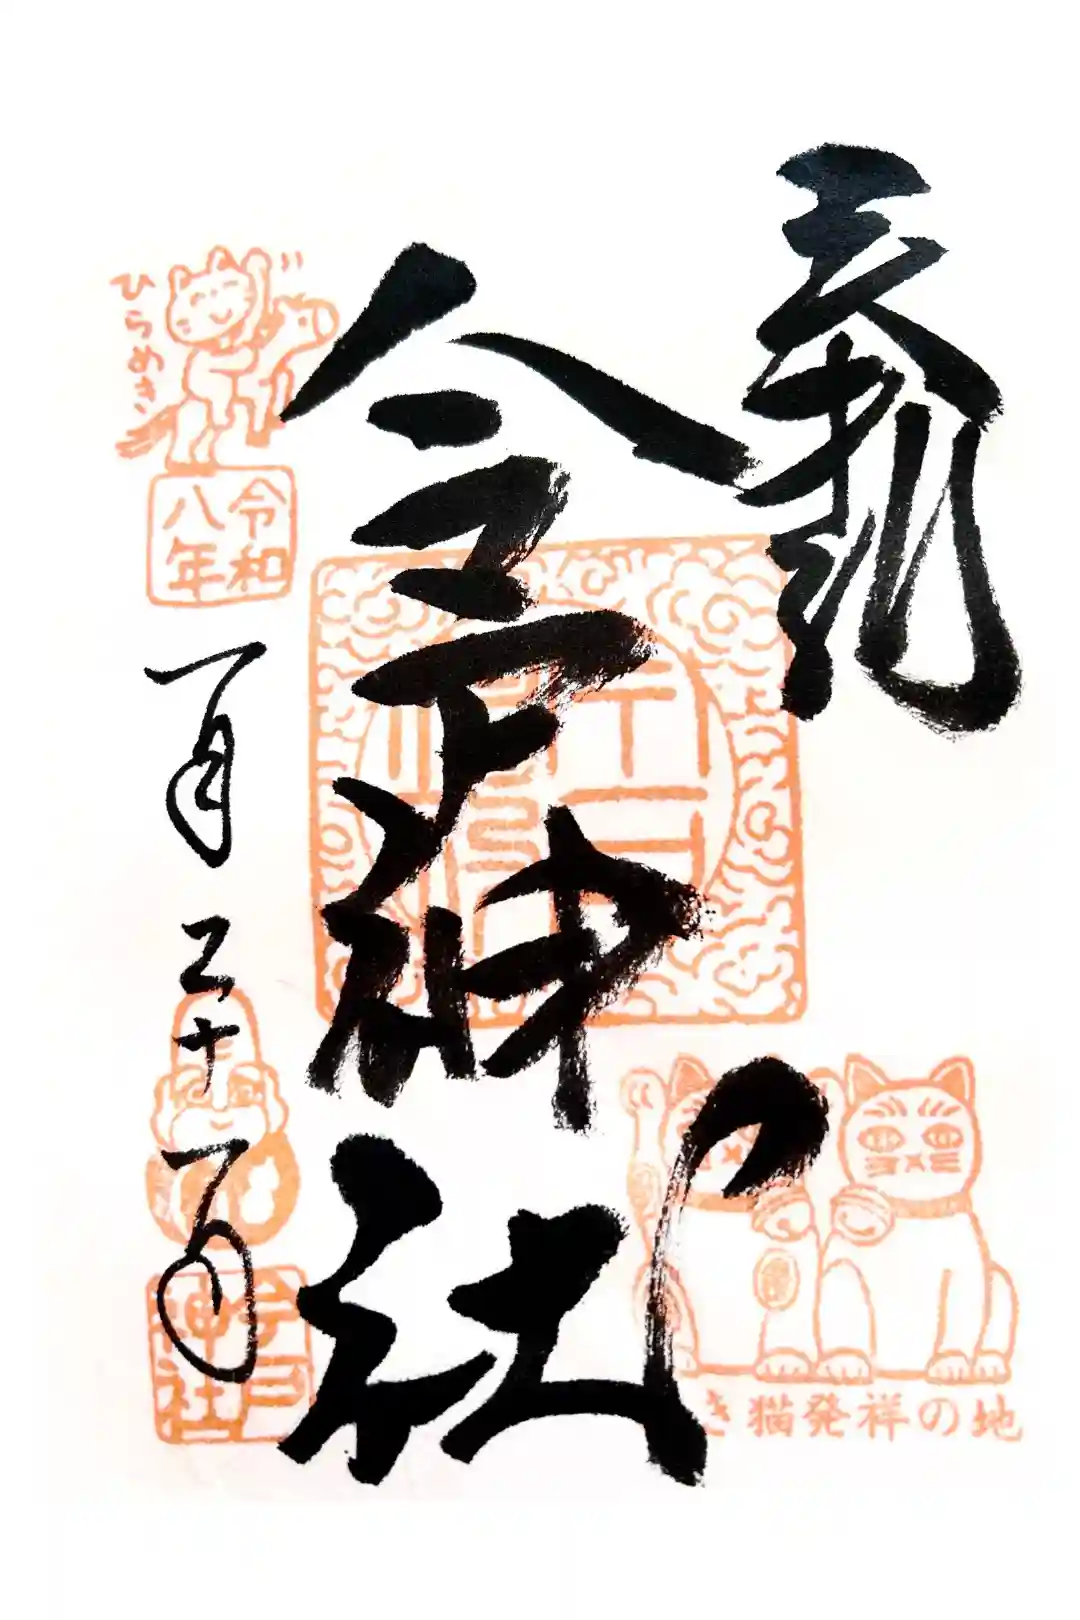 奉拝
今戸神社
ひらめき
令和
八年
一月二十一日
き猫発祥の地
今戸
神社